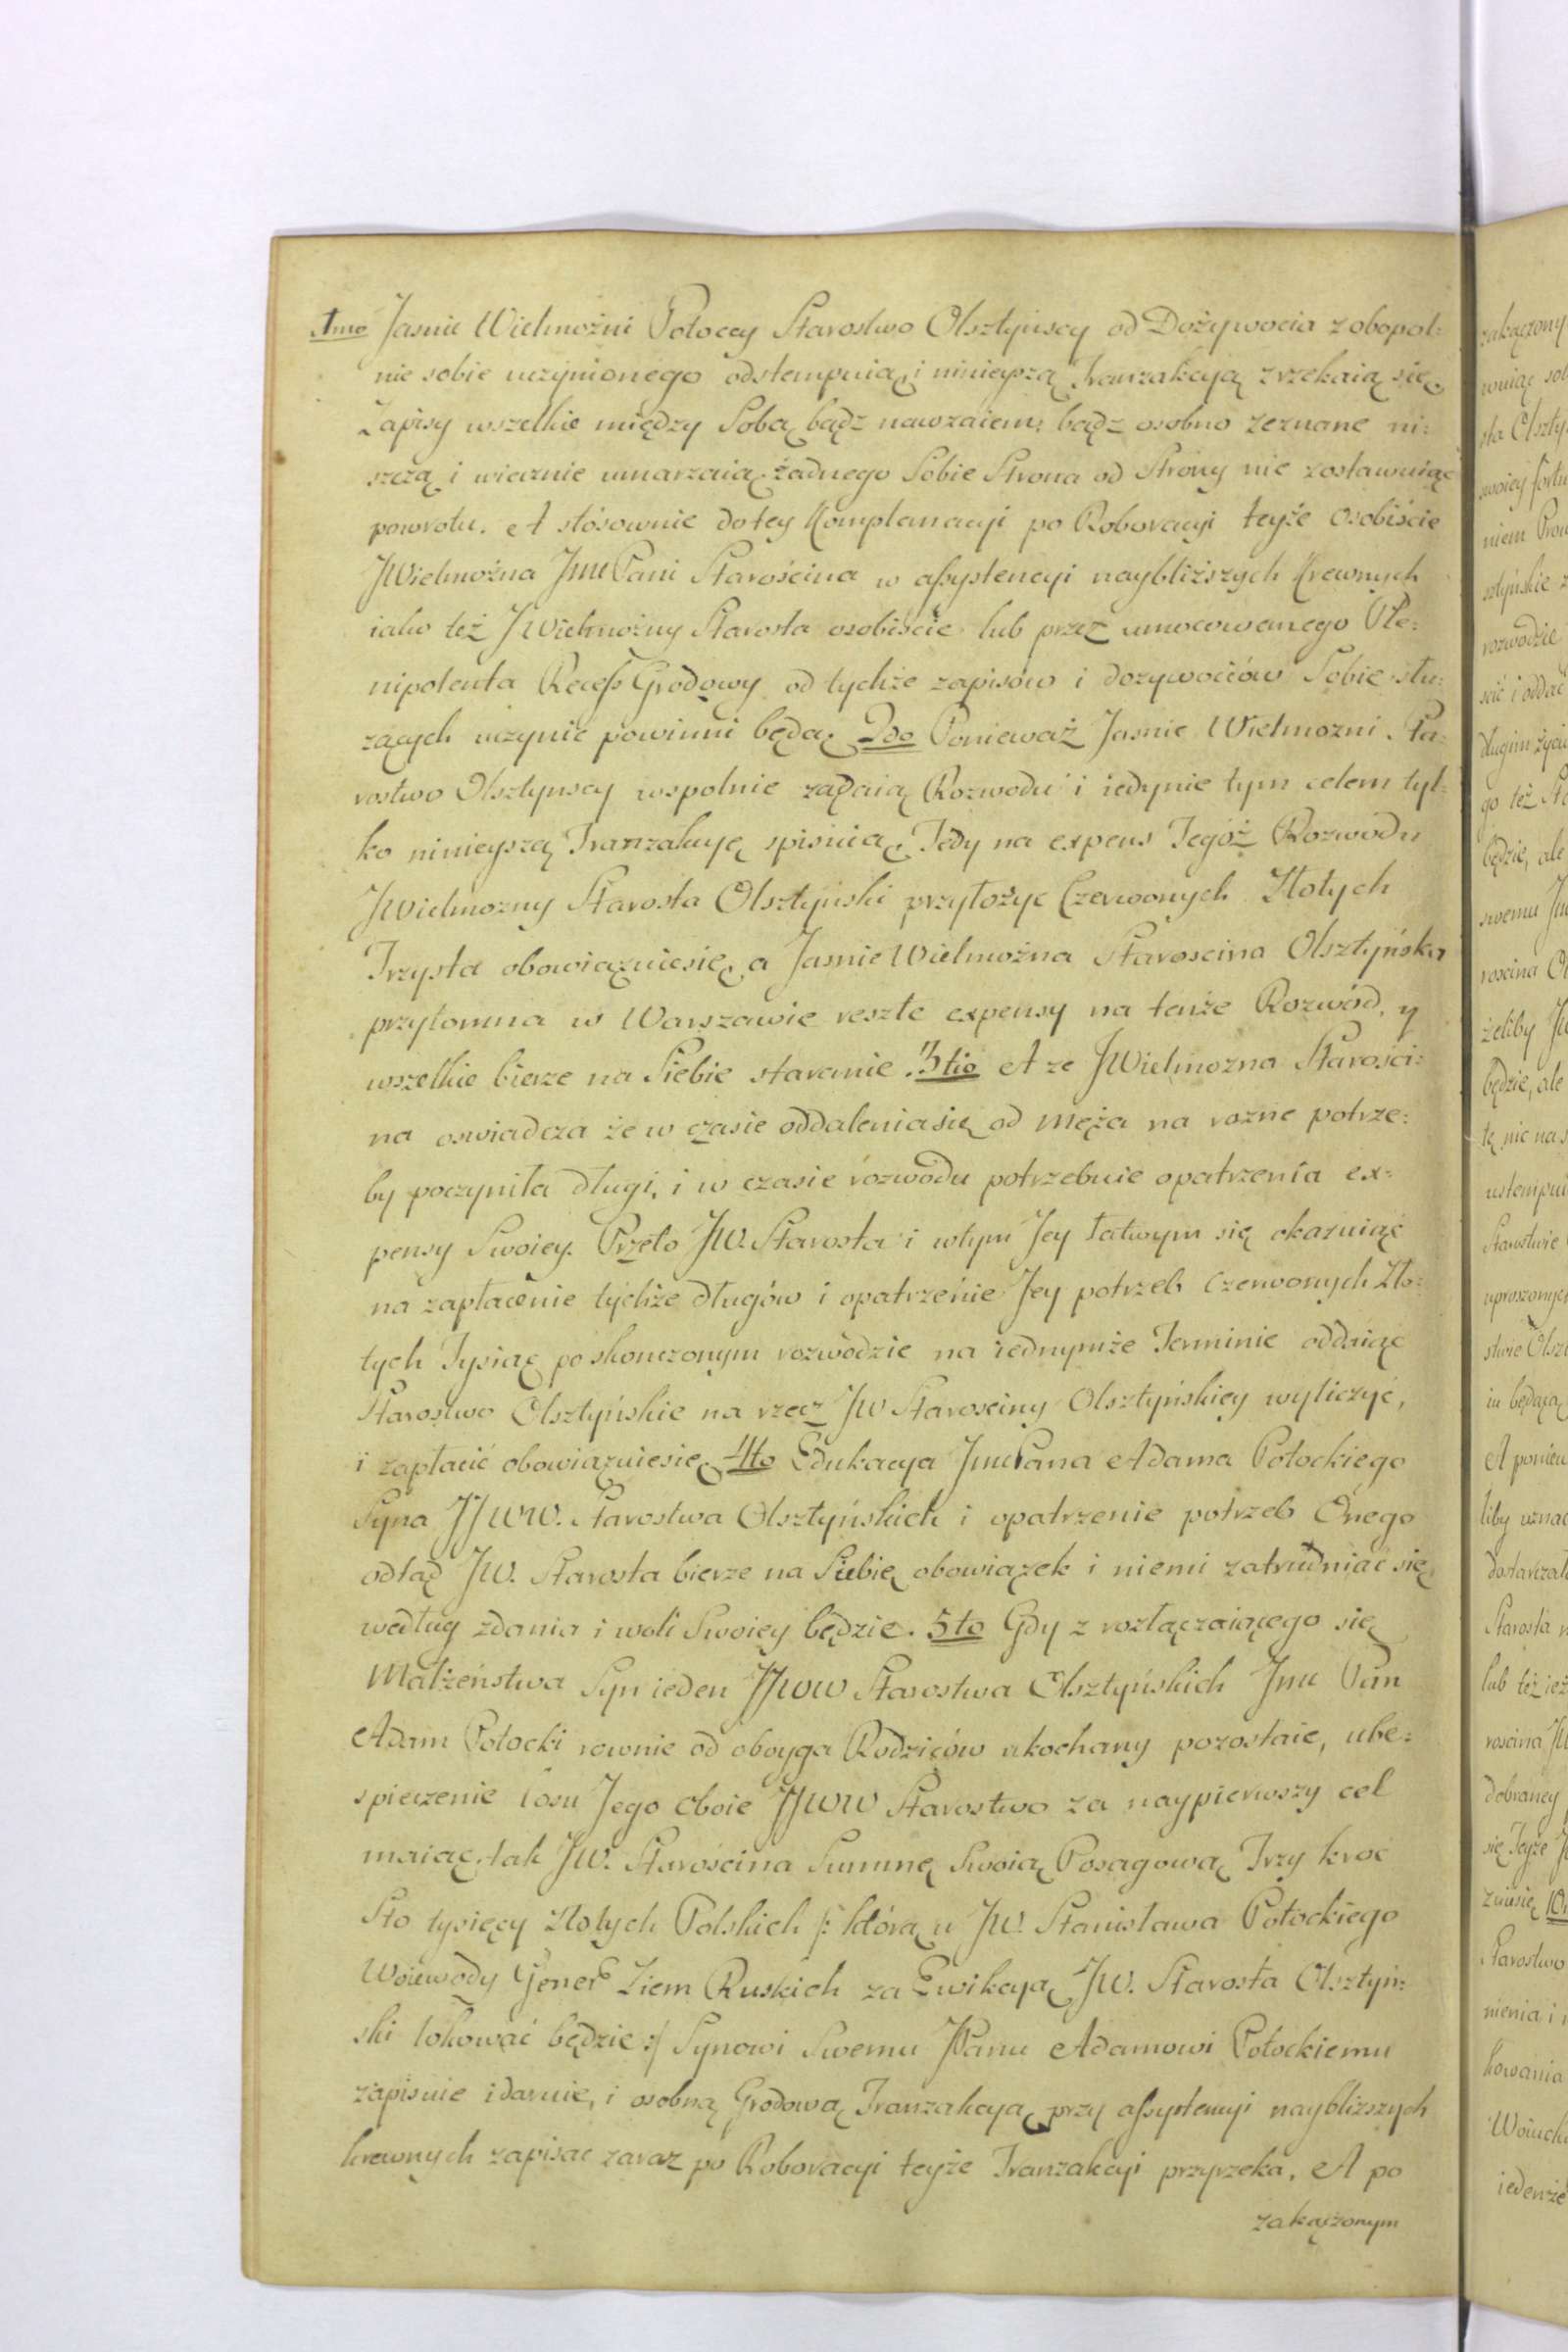 1mo Jasnie Wielmożni Potoccy Starostwo Olsztyńscy od Dożywocia zobopol:
nie sobie uczynionego odstempuią, i ninieyszą Tranzakcyą zrzekaią się,
Zapisy wszelkie między Sobą bądz nawzaiem, bądz osobno zeznane ni:
szczą i wiecznie umarzaią, żadnego Sobie Strona od Strony nie zostawuiąc
powrotu. A stósownie do tey Komplanacyi po Roboracyi teyże osobiście
JWielmożna JmćPani Starościna w assystencyi naybliższych Krewnych
iako też JWielmożny Starosta osobiście lub przez umocowanego Ple:
nipotenta Recess Grodowy od tychże zapisów i dozywociów Sobie słu:
zących uczynic powinni będą. 2do Ponieważ Jasnie Wielmozni Sta:
rostwo Olsztynscy wspolnie ządaią Rozwodu i iedynie tym celem tyl:
ko ninieyszą Tranzakcyę spisuią, Tedy na expens Tegóż Rozwodu
JWielmozny Starosta Olsztyński przyłożyc Czerwonych Złotych
Trzysta obowiązuiesię, a Jasnie Wielmożna Staroscina Olsztyńska
przytomna w Warszawie reszte expensy na tenże Rozwód, y
wszelkie bierze na Siebie staranie. 3tio A ze JWielmozna Starości:
na oswiadcza że w czasie oddaleniasię od męża na rozne potrze:
by poczyniła długi, i w czasie rozwodu potrzebuie opatrzenia ex:
pensy Swoiey. Przeto JW. Starosta i wtym Jey łatwym się okazuiąc
na zapłacenie tychże długów i opatrzenie Jey potrzeb Czerwonych Zło:
tych Tysiąc po skonczonym rozwodzie na iednymże Terminie oddaiąc
Starostwo Olsztyńskie na rzecz JW Starosciny Olsztyńskiey wyliczyć,
i zapłacić obowiązuiesię. 4to Edukacya JmćPana Adama Potockiego
Syna JJWW. Starostwa Olsztyńskich i opatrzenie potrzeb Onego
odtąd JW. Starosta bierze na Siebię obowiązek i niemi zatrudniać się,
według zdania i woli Swoiey będzie. 5to Gdy z rozłączaiącego się
Małżeństwa Syn ieden JJWW Starostwa Olsztyńskich Jmć Pan
Adam Potocki rownie od oboyga Rodziców ukochany pozostaie, ube:
spieczenie losu Jego oboie JJWW Starostwo za naypierwszy cel
maiąc, tak JW. Staroscina Summę Swoią Posagową Trzy kroc
Sto tysięcy Złotych Polskich /: którą u JW. Stanisława Potockiego
Woiewody Gener Ziem Ruskich za Ewikcyą JW. Starosta Olsztyń:
ski lokować będzie :/ Synowi Swemu JPanu Adamowi Potockiemu
zapisuie i daruie, i osobną Grodową Tranzakcyą przy assystencyi naybliższych
krewnych zapisac zaraz po Roboracyi teyże Tranzakcyi przyrzeka. A po
zakączonym